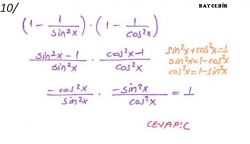 10/
BAYCEBİR
(1 - 1/sin²x) · (1 - 1/cos²x)
sin²x - 1/sin²x · cos²x - 1/cos²x
sin²x + cos²x = 1
sin²x = 1 - cos²x
cos²x = 1 - sin²x
-cos²x/sin²x · -sin²x/cos²x = 1
CEVAP: C